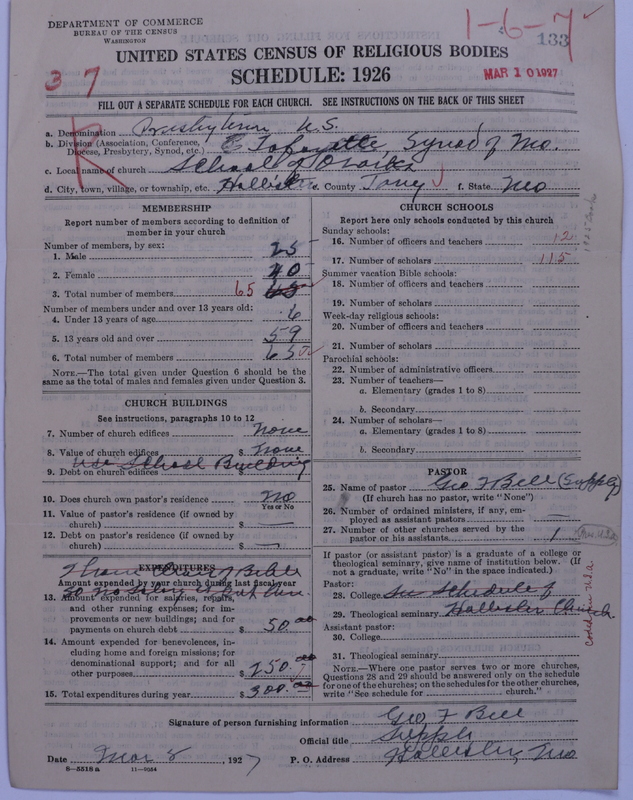 DEPARTMENT OF COMMERCE
BUREAU OF THE CENSUS
WASHINGTON
1-6-7
133
UNITED STATES CENSUS OF RELIGIOUS BODIES
37
SCHEDULE: 1926
MAR 10 1927
FILL OUT A SEPARATE SCHEDULE FOR EACH CHURCH. SEE INSTRUCTIONS ON THE BACK OF THIS SHEET
R
a. Denomination Presbyterian U.S.
b. Division (Association, Conference, Diocese, Presbytery, Synod, etc.) Lafayette Synod of Mo.
c. Local name of church School of Ozarks
d. City, town, village, or township, etc. Hollister e. County Taney f. State Mo
MEMBERSHIP
Report number of members according to definition of
member in your church
Number of members, by sex:
1. Male 25
2. Female 40
3. Total number of members 65 65
Number of members under and over 13 years old:
4. Under 13 years of age 6
5. 13 years old and over 59
6. Total number of members 65
NOTE.—The total given under Question 6 should be
same as the total of males and females given under Question 3.
CHURCH BUILDINGS
See instructions, paragraphs 10 to 12
7. Number of church edifices none
8. Value of church edifices $ none
use School Building
9. Debt on church edifices $
10. Does church own pastor's residence no
Yes or No
11. Value of pastor's residence (if owned by
church) $ —
12. Debt on pastor's residence (if owned by
church) $ —
EXPENDITURES
I have Chair of Bible
Amount expended by your church during last fiscal year
so no salary
13. Amount expended for salaries, repairs,
and other running expenses; for im-
provements or new buildings; and for
payments on church debt $ 50.00
14. Amount expended for benevolences, in-
cluding home and foreign missions; for
denominational support; and for all
other purposes $ 250.00
15. Total expenditures during year $ 300.00
CHURCH SCHOOLS
Report here only schools conducted by this church
Sunday schools:
16. Number of officers and teachers 12
17. Number of scholars 115
Summer vacation Bible schools:
18. Number of officers and teachers
19. Number of scholars
Week-day religious schools:
20. Number of officers and teachers
21. Number of scholars
Parochial schools:
22. Number of administrative officers
23. Number of teachers—
a. Elementary (grades 1 to 8)
b. Secondary
24. Number of scholars—
a. Elementary (grades 1 to 8)
b. Secondary
PASTOR
25. Name of pastor Geo F Bell (Supply)
(If church has no pastor, write "None")
26. Number of ordained ministers, if any, em-
ployed as assistant pastors —
27. Number of other churches served by the
pastor or his assistants 1
If pastor (or assistant pastor) is a graduate of a college or
theological seminary, give name of institution below. (If
not a graduate, write "No" in the space indicated.)
Pastor:
28. College See Schedule of
29. Theological seminary Hollister Church
Assistant pastor:
30. College
31. Theological seminary
NOTE.—Where one pastor serves two or more churches,
Questions 28 and 29 should be answered only on the schedule
for one of the churches; on the schedules for the other churches,
write "See schedule for ........ church."
Signature of person furnishing information Geo F Bell
Official title Supply
Date Mar 8, 1927 P. O. Address Hollister, Mo
8—5518 a 11—9054